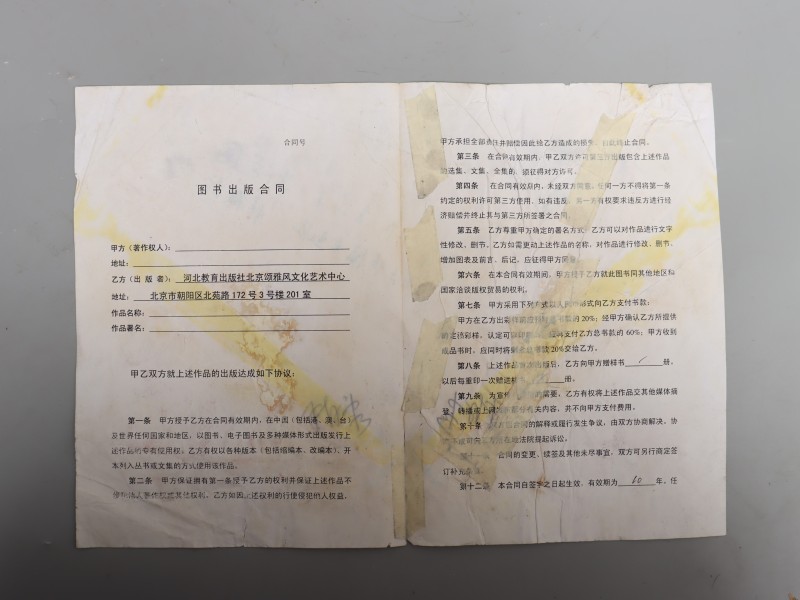 合同号
图书出版合同
甲方（著作权人）：
地址：
乙方（出 版 者）：河北教育出版社北京颂雅风文化艺术中心
地址：北京市朝阳区北苑路172号3号楼201室
作品名称：
作品署名：
甲乙双方就上述作品的出版达成如下协议：
第一条 甲方授予乙方在合同有效期内，在中国（包括港、澳、台）
及世界任何国家和地区，以图书、电子图书及多种媒体形式出版发行上
述作品的专有使用权。乙方有权以各种版本（包括缩编本、改编本）、开
本列入丛书或文集的方式使用该作品。
第二条 甲方保证拥有第一条授予乙方的权利并保证上述作品不
侵犯他人著作权或其他权利。乙方如因上述权利的行使侵犯他人权益，
甲方承担全部责任并赔偿因此给乙方造成的损失，
终止合同。
第三条 在合同有效期内，甲乙双方许可第三方出版包含上述作品
的选集、文集、全集的，须征得对方许可。
第四条 在合同有效期内，未经双方同意，任何一方不得将第一条
约定的权利许可第三方使用。如有违反，另一方有权要求违反方进行经
济赔偿并终止其与第三方所签署之合同。
第五条 乙方尊重甲方确定的署名方式。乙方可以对作品进行文字
性修改、删节。乙方如需更动上述作品的名称，对作品进行修改、删节、
增加图表及前言、后记，应征得甲方同意。
第六条 在本合同有效期间，甲方授予乙方就此图书同其他地区和
国家洽谈版权贸易的权利。
第七条 甲方采用下列方式
形式向乙方支付书款：
甲方在乙方出彩样前应付
书款的20%；经甲方确认乙方所提供
的定稿彩样，认定可以印刷
支付乙方总书款的60%；甲方收到
成品书时，应同时将剩余总书款20%交给乙方。
第八条 上述作品首次出版后，乙方向甲方赠样书 / 册，
以后每重印一次赠送样书
册。
第九条 为宣传
需要，乙方有权将上述作品交其他媒体摘
登、转播或上网
相关内容，并不向甲方支付费用。
第十条
合同的解释或履行发生争议，由双方协商解决。协
法院提起诉讼。
第十一条 合同的变更、续签及其他未尽事宜，双方可另行商定签
订补充
第十二条 本合同自签字之日起生效，有效期为 10 年。任